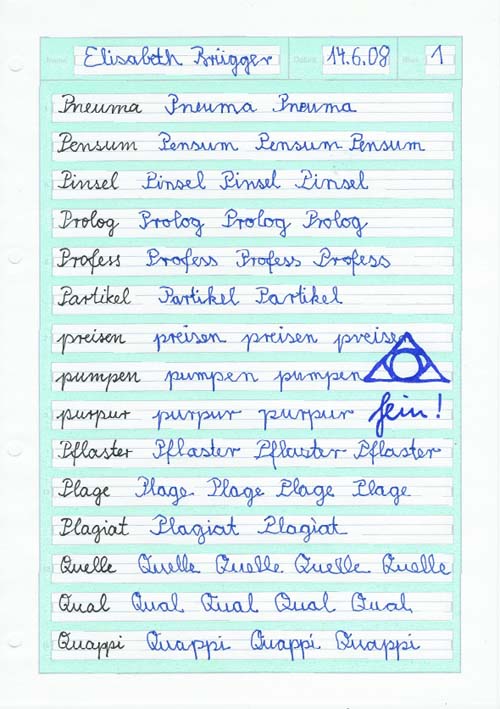 Name Elisabeth Brügger Datum 14.6.08 Blatt 1
Pneuma Pneuma Pneuma
Pensum Pensum Pensum Pensum
Pinsel Pinsel Pinsel Pinsel
Prolog Prolog Prolog Prolog
Profess Profess Profess Profess
Partikel Partikel Partikel
preisen preisen preisen preisen
pumpen pumpen pumpen
purpur purpur purpur fein!
Pflaster Pflaster Pflaster Pflaster
Plage Plage Plage Plage Plage
Plagiat Plagiat Plagiat
Quelle Quelle Quelle Quelle Quelle
Qual Qual Qual Qual Qual
Quappi Quappi Quappi Quappi